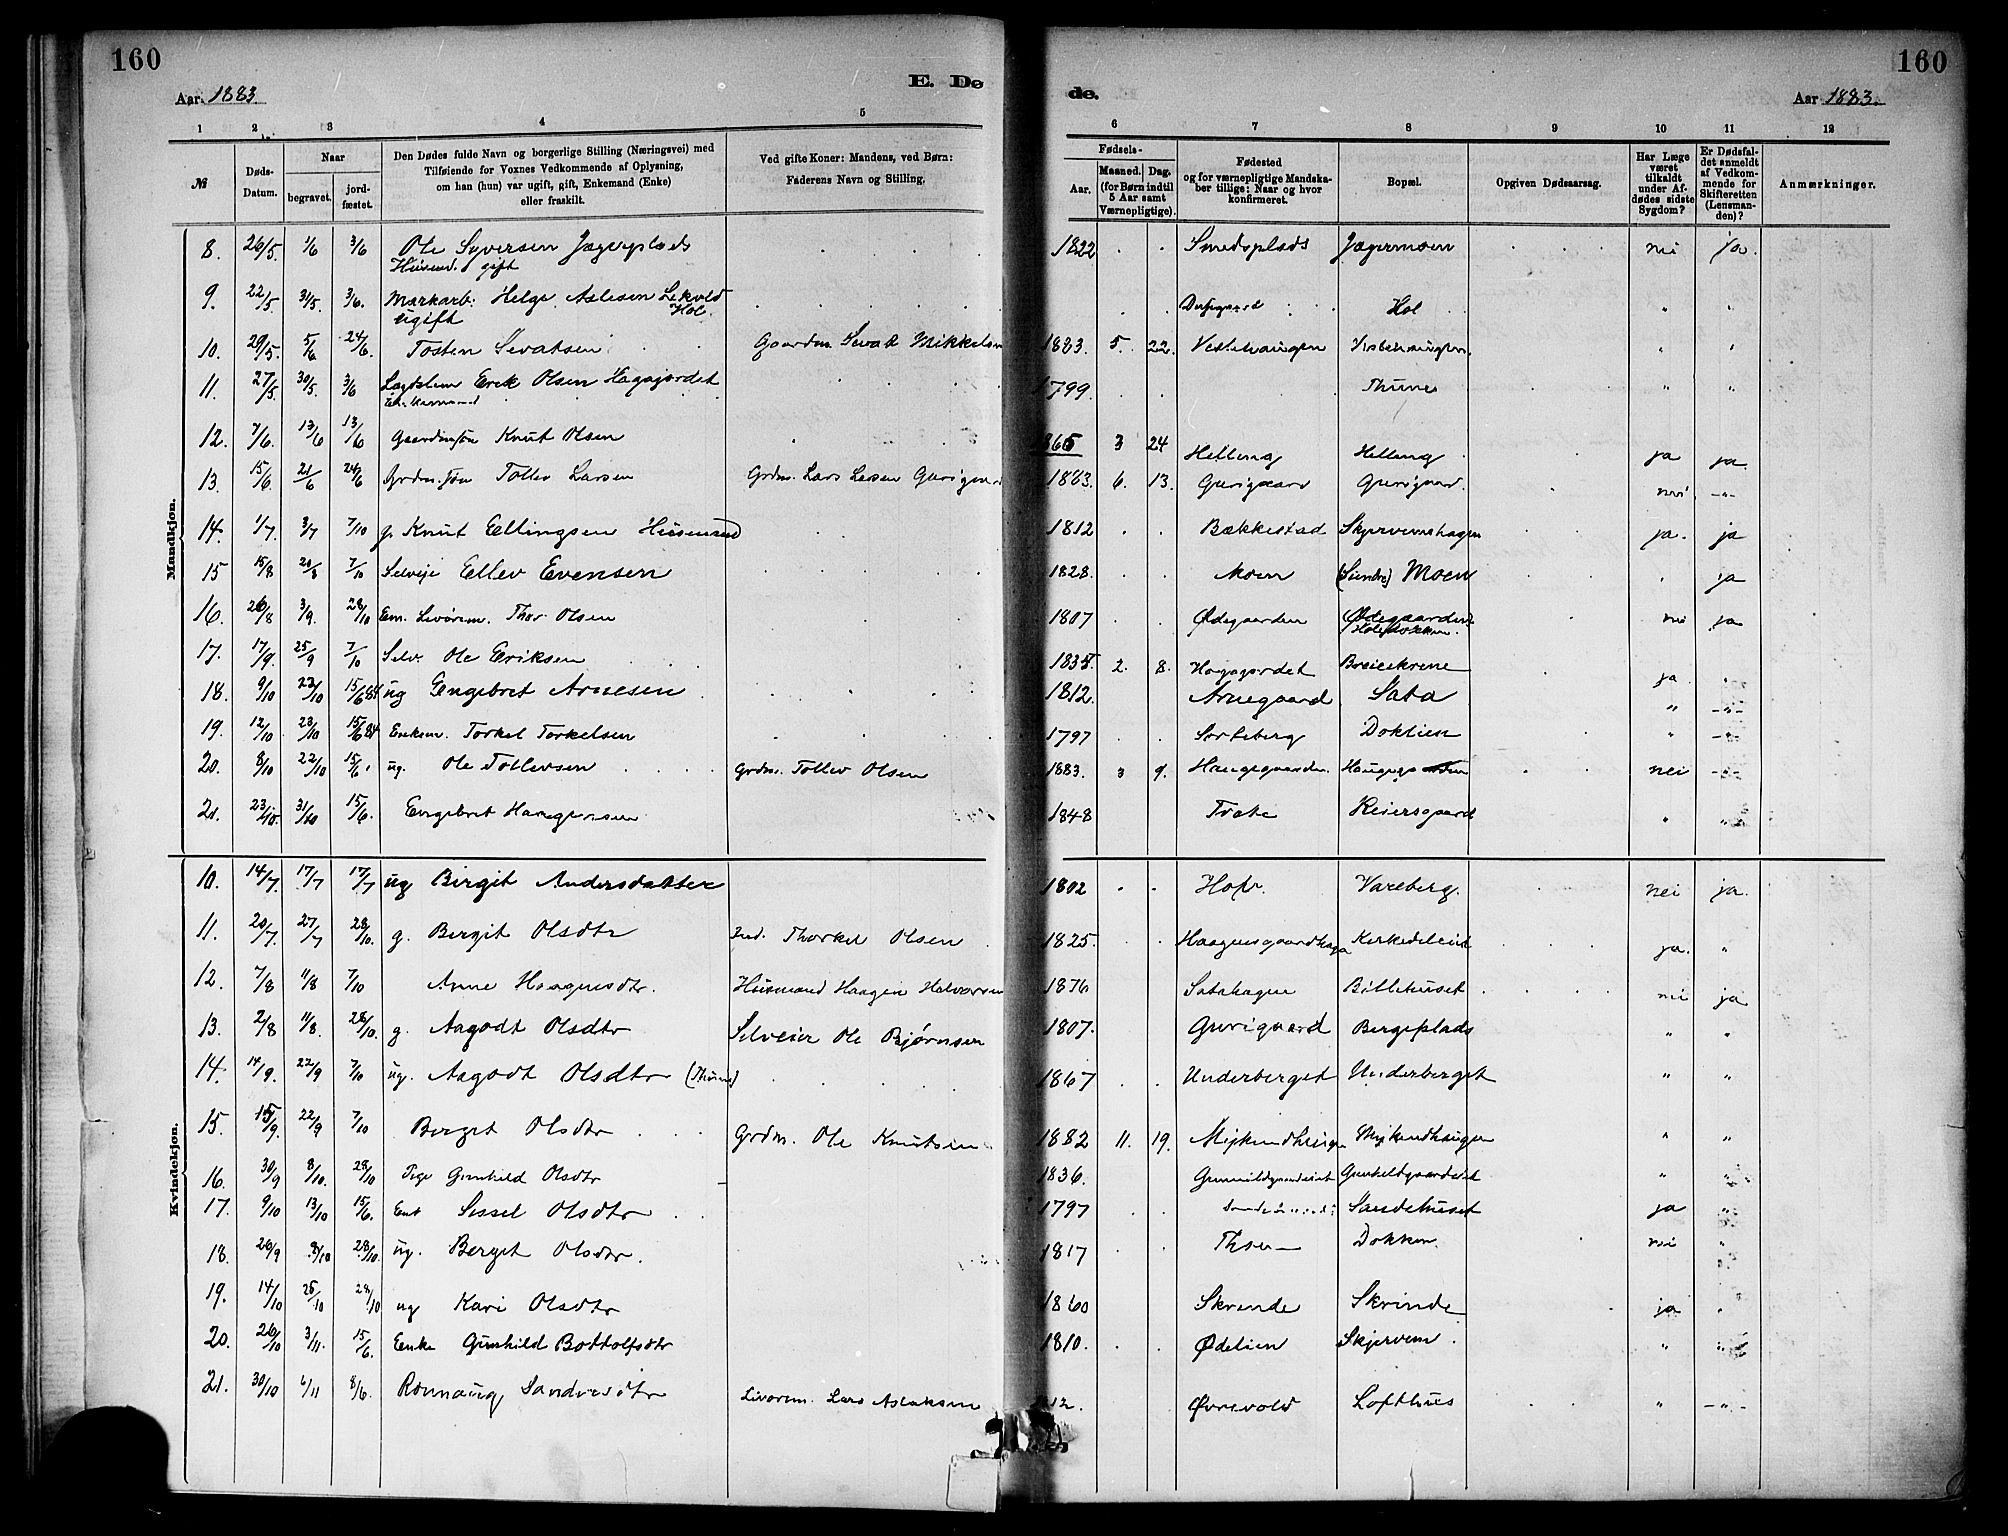 160
160
E. Dø
de.
Aar. 1883.
Aar 1883.
1 2 3 4 5
6 7 8 9 10 11 12
№
Døds-Datum.
Naar
begravet.
jord-fæstet.
Den Dødes fulde Navn og borgerlige Stilling (Næringsvei) med
Tilføiende for Voxnes Vedkommende af Oplysning,
om han (hun) var ugift, gift, Enkemand (Enke)
eller fraskilt.
Ved gifte Koner: Mandens, ved Børn:
Faderens Navn og Stilling.
Fødsels-
Aar.
Maaned. Dag.
(for Børn indtil
5 Aar samt
Værnepligtige).
Fødested
og for værnepligtige Mandska-
ber tillige: Naar og hvor
konfirmeret.
Bopæl.
Opgiven Dødsaarsag.
Har Læge
været
tilkaldt
under Af-
dødes sidste
Sygdom?
Er Dødsfal-
det anmeldt
af Vedkom-
mende for
Skifteretten
(Lensman-
den)?
Anmærkninger.
Mandkjøn.
8. 26/5. 1/6 3/6 Ole Syversen Jægerplads 1822 Smedsplads Jægermoen nei ja.
Husmd. gift
9. 22/5 31/5. 3/6. Markarb: Helge Aslesen Lekvold Hol " "
Hol.
ugift
10. 29/5. 5/6 24/6. Tosten Sevatsen Gaardm. Sevat Mikkelsen 1883. 5. 22. Vestehaugen Vestehaugen " "
11. 27/5. 30/5. 3/6 Erik Olsen Hagajordet 1799. Thune " "
Enkemand
12. 7/6. 13/6 13/6 Knut Olsen 1865 3 24 Helling Helling ja ja
13. 15/6. 21/6 24/6 Grdm. søn Tollev Larsen Grdm. Lars Larsen Gurigaard 1883 6. 13. Gurigaard Gurigaard. nei -"-
14. 1/7. 3/7 7/10 g. Knut Ellingsen Husmand 1812 Bækkestad Skjervemshagen ja. ja
15 15/8 20/8 7/10 Selveje Ellev Evensen 1828. Moen (Sundre) Moen ja
16. 26/8 3/9. 28/10 Em. Livørem. Thor Olsen 1807 Ødegaarden Ødegaarden nei ja
17. 17/9. 25/9 7/10 Selv. Ole Eriksen 1835. 2. 8. Hagajordet Breiekrene ja "
18. 9/10 23/10 15/6 84 ug Engebret Arnesen 1812. Arnegaard Sata " -"-
19. 12/10 23/10 15/6 84 Enkem. Torkel Torkelsen 1797 Sorteberg Doklien " -"-
20. 8/10 22/10 15/6. ug. Ole Tollevsen Grdm. Tollev Olsen 1883. 3 9. Haugegaarden. nei -"-
21. 23/10. 31/10 15/6. Engebret Haagensen 1848 Reiersgaard " "
Kvindekjøn.
10. 14/7. 17/7 17/7 ug Birgit Andersdatter 1802 Hofr. Vareberg. nei ja.
11. 20/7. 27/7 28/10. g. Birgit Olsdtr Thorkel Olsen 1825. Haagensgaardhaga Kirkedelend ja. "
12. 7/8 11/8 7/10 Anne Haagensdtr. Husmand Haagen Halvorsen 1876 Satahagen Billehuset nei ja
13. 2/8 11/8. 28/10. g. Aagodt Olsdtr Selveier Ole Bjørnsen 1807. Gurigaard Bergeplads " "
14. 14/9. 22/9 7/10 ug. Aagodt Olsdtr (Thune) 1867 Underberget Underberget " "
15. 15/9. 22/9 7/10 Berget Olsdtr Grdm. Ole Knutsen 1882 11. 19. Mykindhaugen " "
16. 30/9 8/10. 28/10 Pige Gunhild Olsdtr 1836. Gunhildgaardeiet " "
17. 9/10 13/10 15/6. Enk Sissel Olsdtr 1797 Sandehuset ja "
18. 26/9 8/10 28/10. ug. Berget Olsdtr. 1817 Dokken. nei "
19. 14/10 25/10 28/10 ug Kari Olsdtr 1860 Skrinde Skrinde ja "
20. 26/10 3/11. 15/6. Enke Gunhild Bottolfsdtr 1810. Ødelien Skjervem " "
21. 30/10 6/11 8/6. Rønnaug Sandersdtr Livørem. Lars Aslaksen 12. Øvrevold Lofthus " -"-